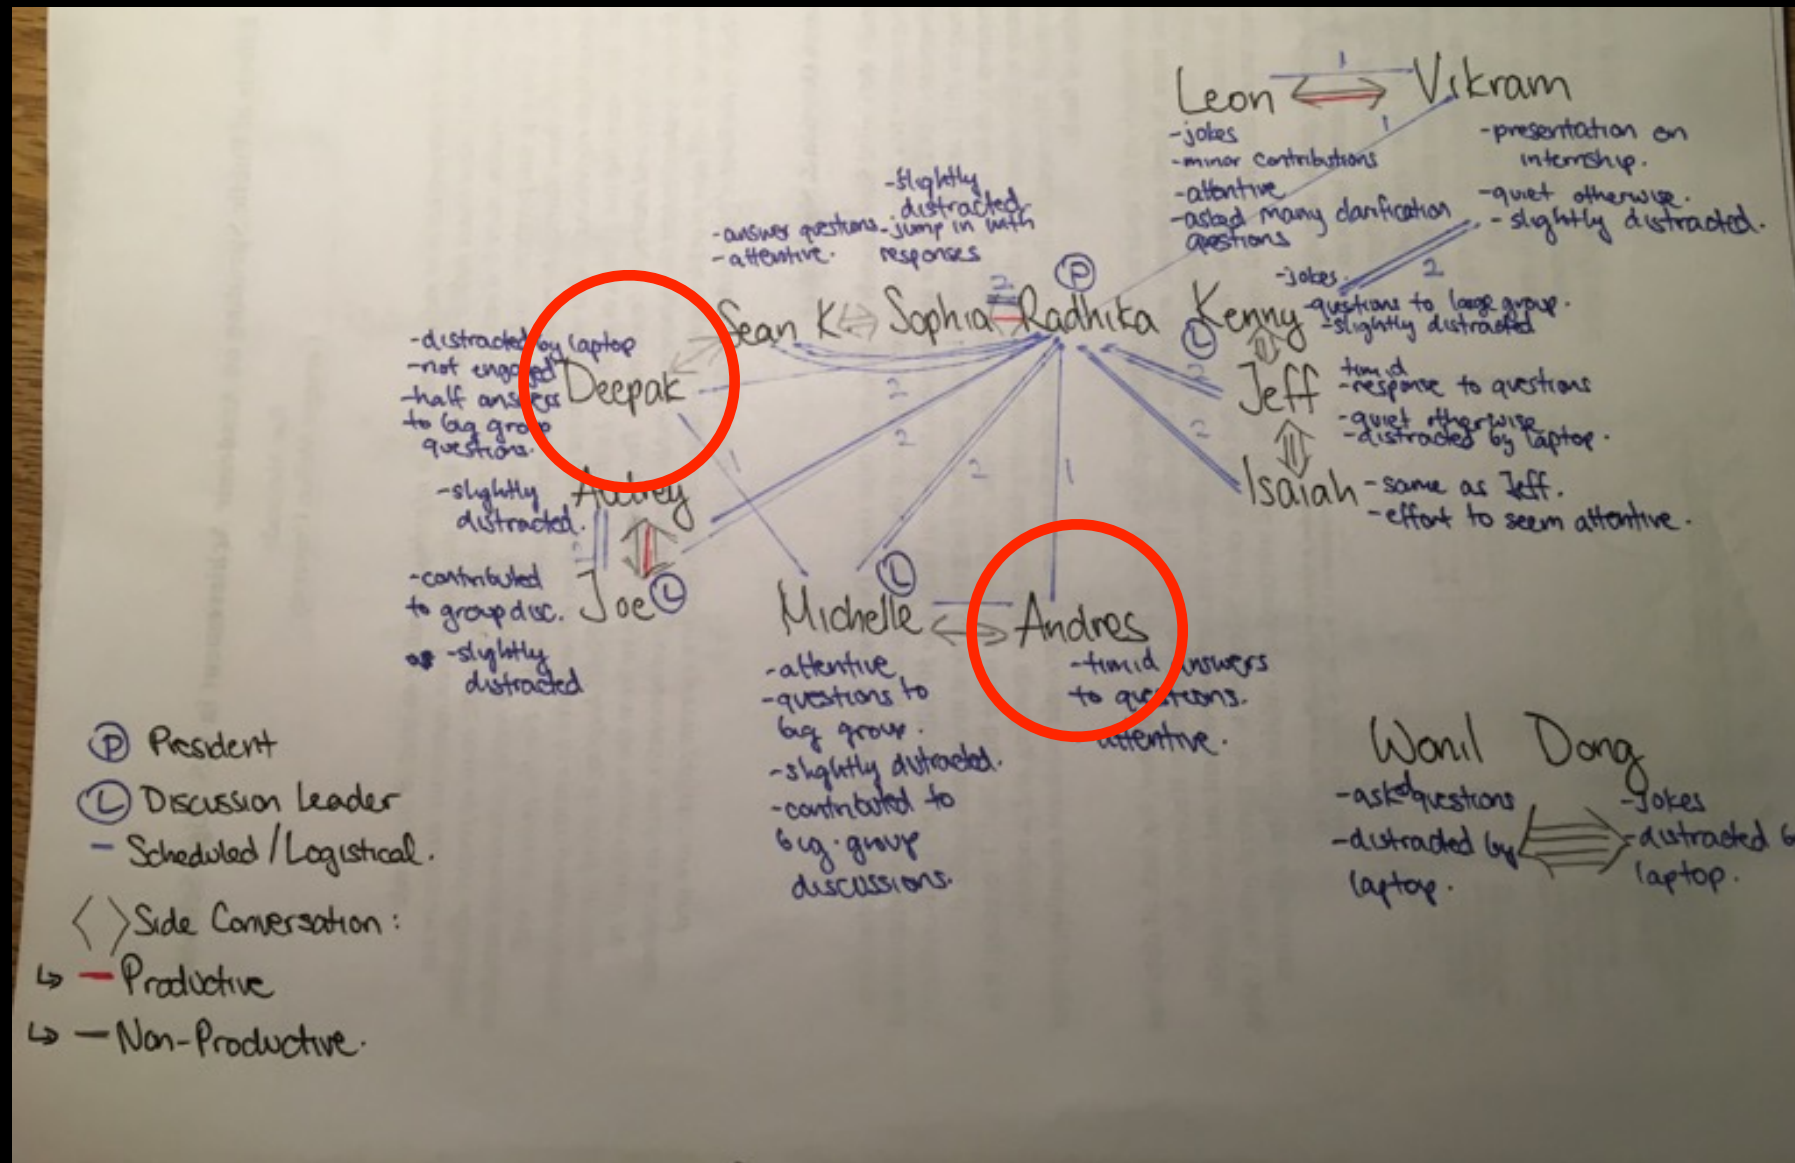 Leon
Vikram
1
-jokes
-minor contributions
-attentive
-asked many clarification
questions
1
-presentation on
internship.
-quiet otherwise.
-slightly distracted.
-answer questions
-attentive.
-slightly
distracted
-jump in with
responses
Sean K
Sophia
2
Radhika
P
Kenny
L
-jokes.
-questions to large group.
-slightly distracted
2
-distracted by laptop
-not engaged
-half answers
to big group
questions.
Deepak
2
2
2
1
1
2
2
Jeff
timid
-response to questions
-quiet otherwise
-distracted by laptop.
Isaiah
-same as Jeff.
-effort to seem attentive.
-slightly
distracted.
Audrey
2
-contributed
to group disc.
-slightly
distracted
Joe
L
Michelle
L
-attentive
-questions to
big group.
-slightly distracted.
-contributed to
big group
discussions.
Andres
-timid answers
to questions.
attentive.
Wonil
-asked questions
-distracted by
laptop.
Dong
-Jokes
-distracted b
laptop.
P President
L Discussion Leader
- Scheduled/Logistical.
<> Side Conversation:
↳ — Productive
↳ — Non-Productive.